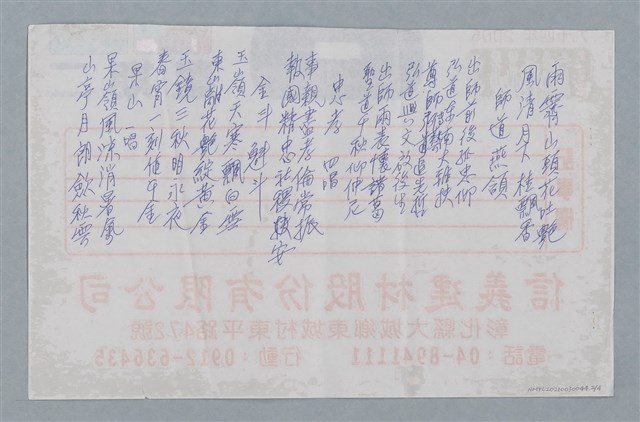 雨霽山頭花吐艷
風清月下桂飄香
師道 燕領
出師前後孤忠仰
弘道東南大雅扶
尊師重道追先哲
弘道興文啟後生
出師兩表懷諸葛
聖道千秋仰仲尼
忠孝 四唱
事親盡孝倫常振
報國精忠社稷安
金斗 魁斗
玉嶺天寒飄白雪
東山離花艷綻黃金
玉鏡三秋明永夜
春宵一刻值千金
果山 一唱
果嶺風涼消暑氣
山亭月朗飲秋雲
信義建材股份有限公司
彰化縣大城鄉東城村東平路472號
電話：04-8941111 行動：0912-636435